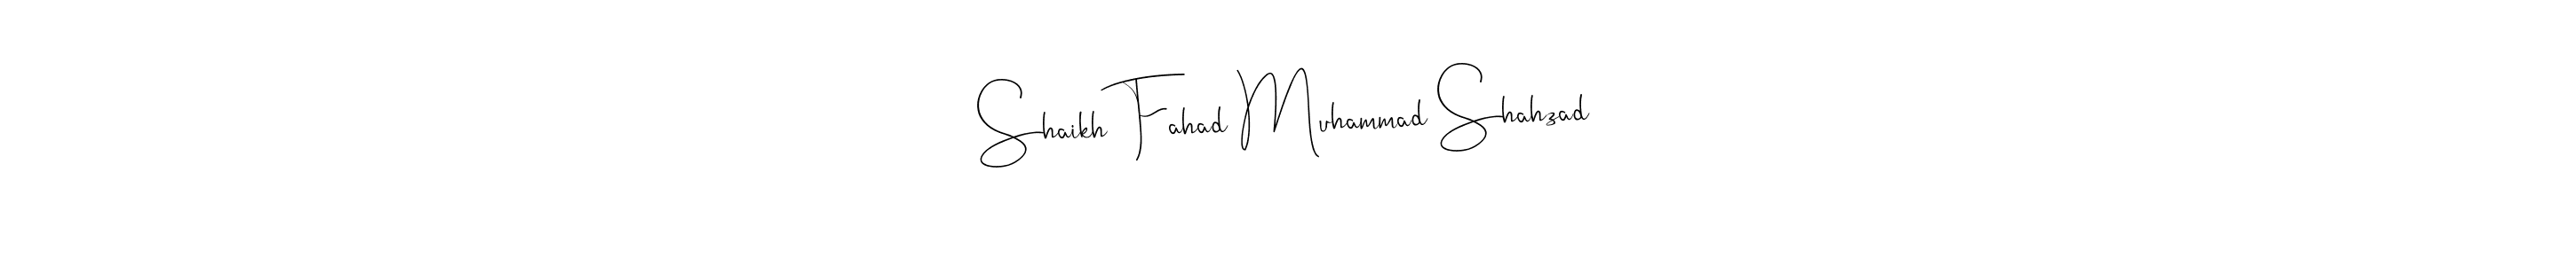 Shaikh Fahad Muhammad Shahzad